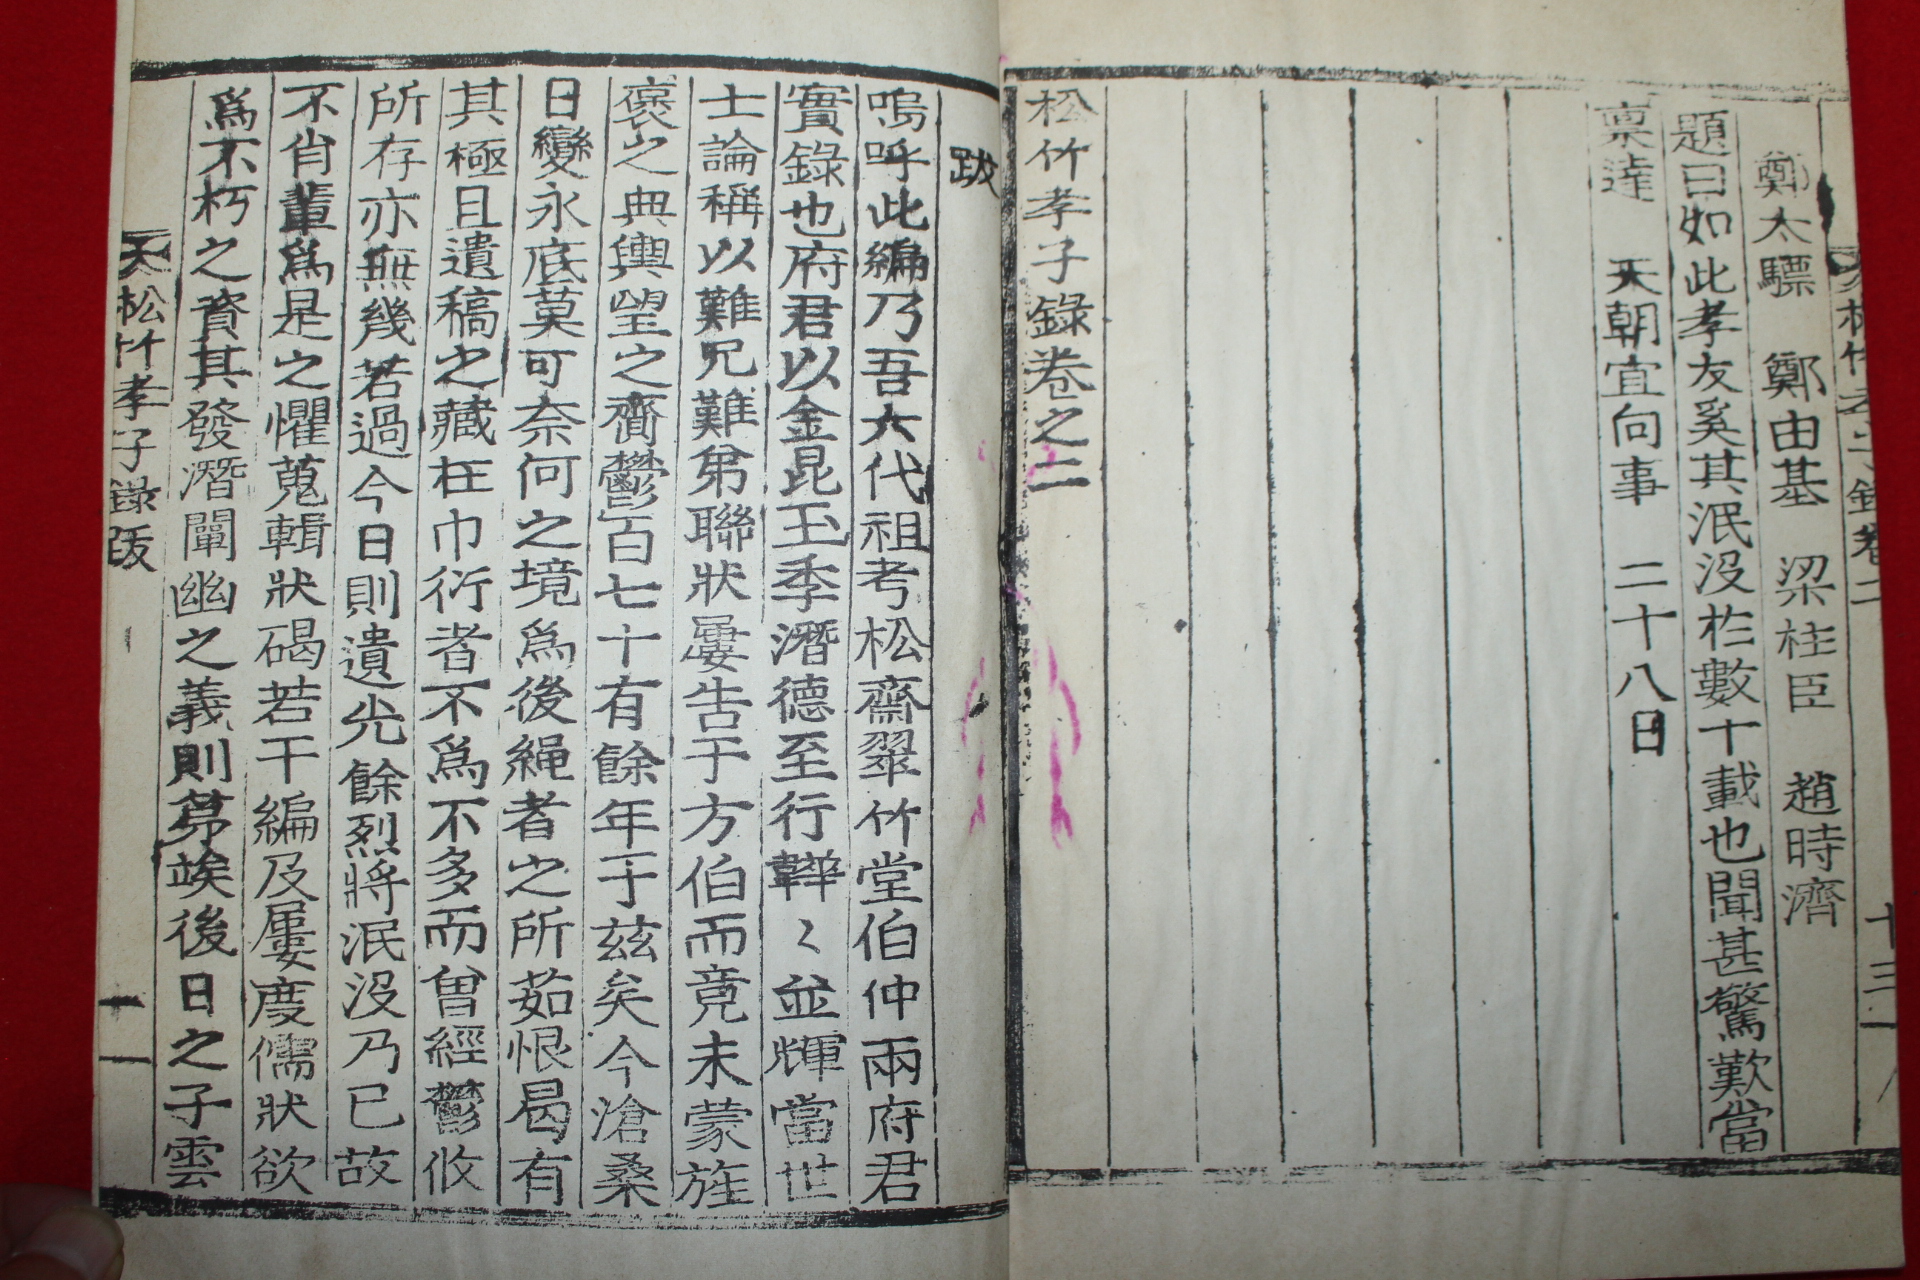 鄭太驃　鄭由基　梁桂臣　趙時濟
題曰如此孝友奚其泯没於數十載也聞甚驚歎當
禀達　天朝宜向事　二十八日
松竹孝子錄卷之二
跋
嗚呼此編乃吾六代祖考松齋翠竹堂伯仲兩府君
實錄也府君以金昆玉季潛德至行韡〻並輝當世
士論稱以難兄難弟聯狀屢告于方伯而竟未蒙旌
褒之典輿望之齎鬱百七十有餘年于玆矣今滄桑
日變永底莫可奈何之境爲後繩者之所茹恨曷有
其極且遺稿之藏在巾衍者不爲不多而曾經鬱攸
所存亦無幾若過今日則遺光餘烈將泯没乃已故
不肖輩爲是之懼蒐輯狀碣若干編及屢度儒狀欲
爲不朽之資其發潛闡幽之義則苐竢後日之子雲
松竹孝子錄跋　一